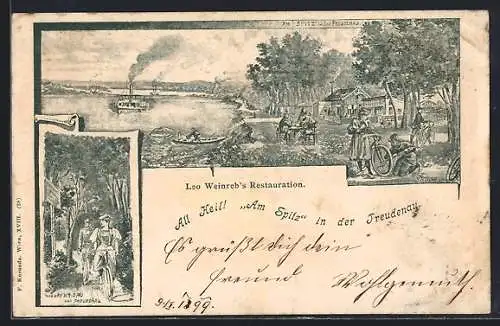 Am Spitz in der Freudenau
Leo Weinreb's Restauration.
All Heil! „Am Spitz" in der Freudenau.
Es grüßt Dich dein
Freund Wohlgemuth
9/4. 1899.
F. Komada. Wien, XVIII. (28)